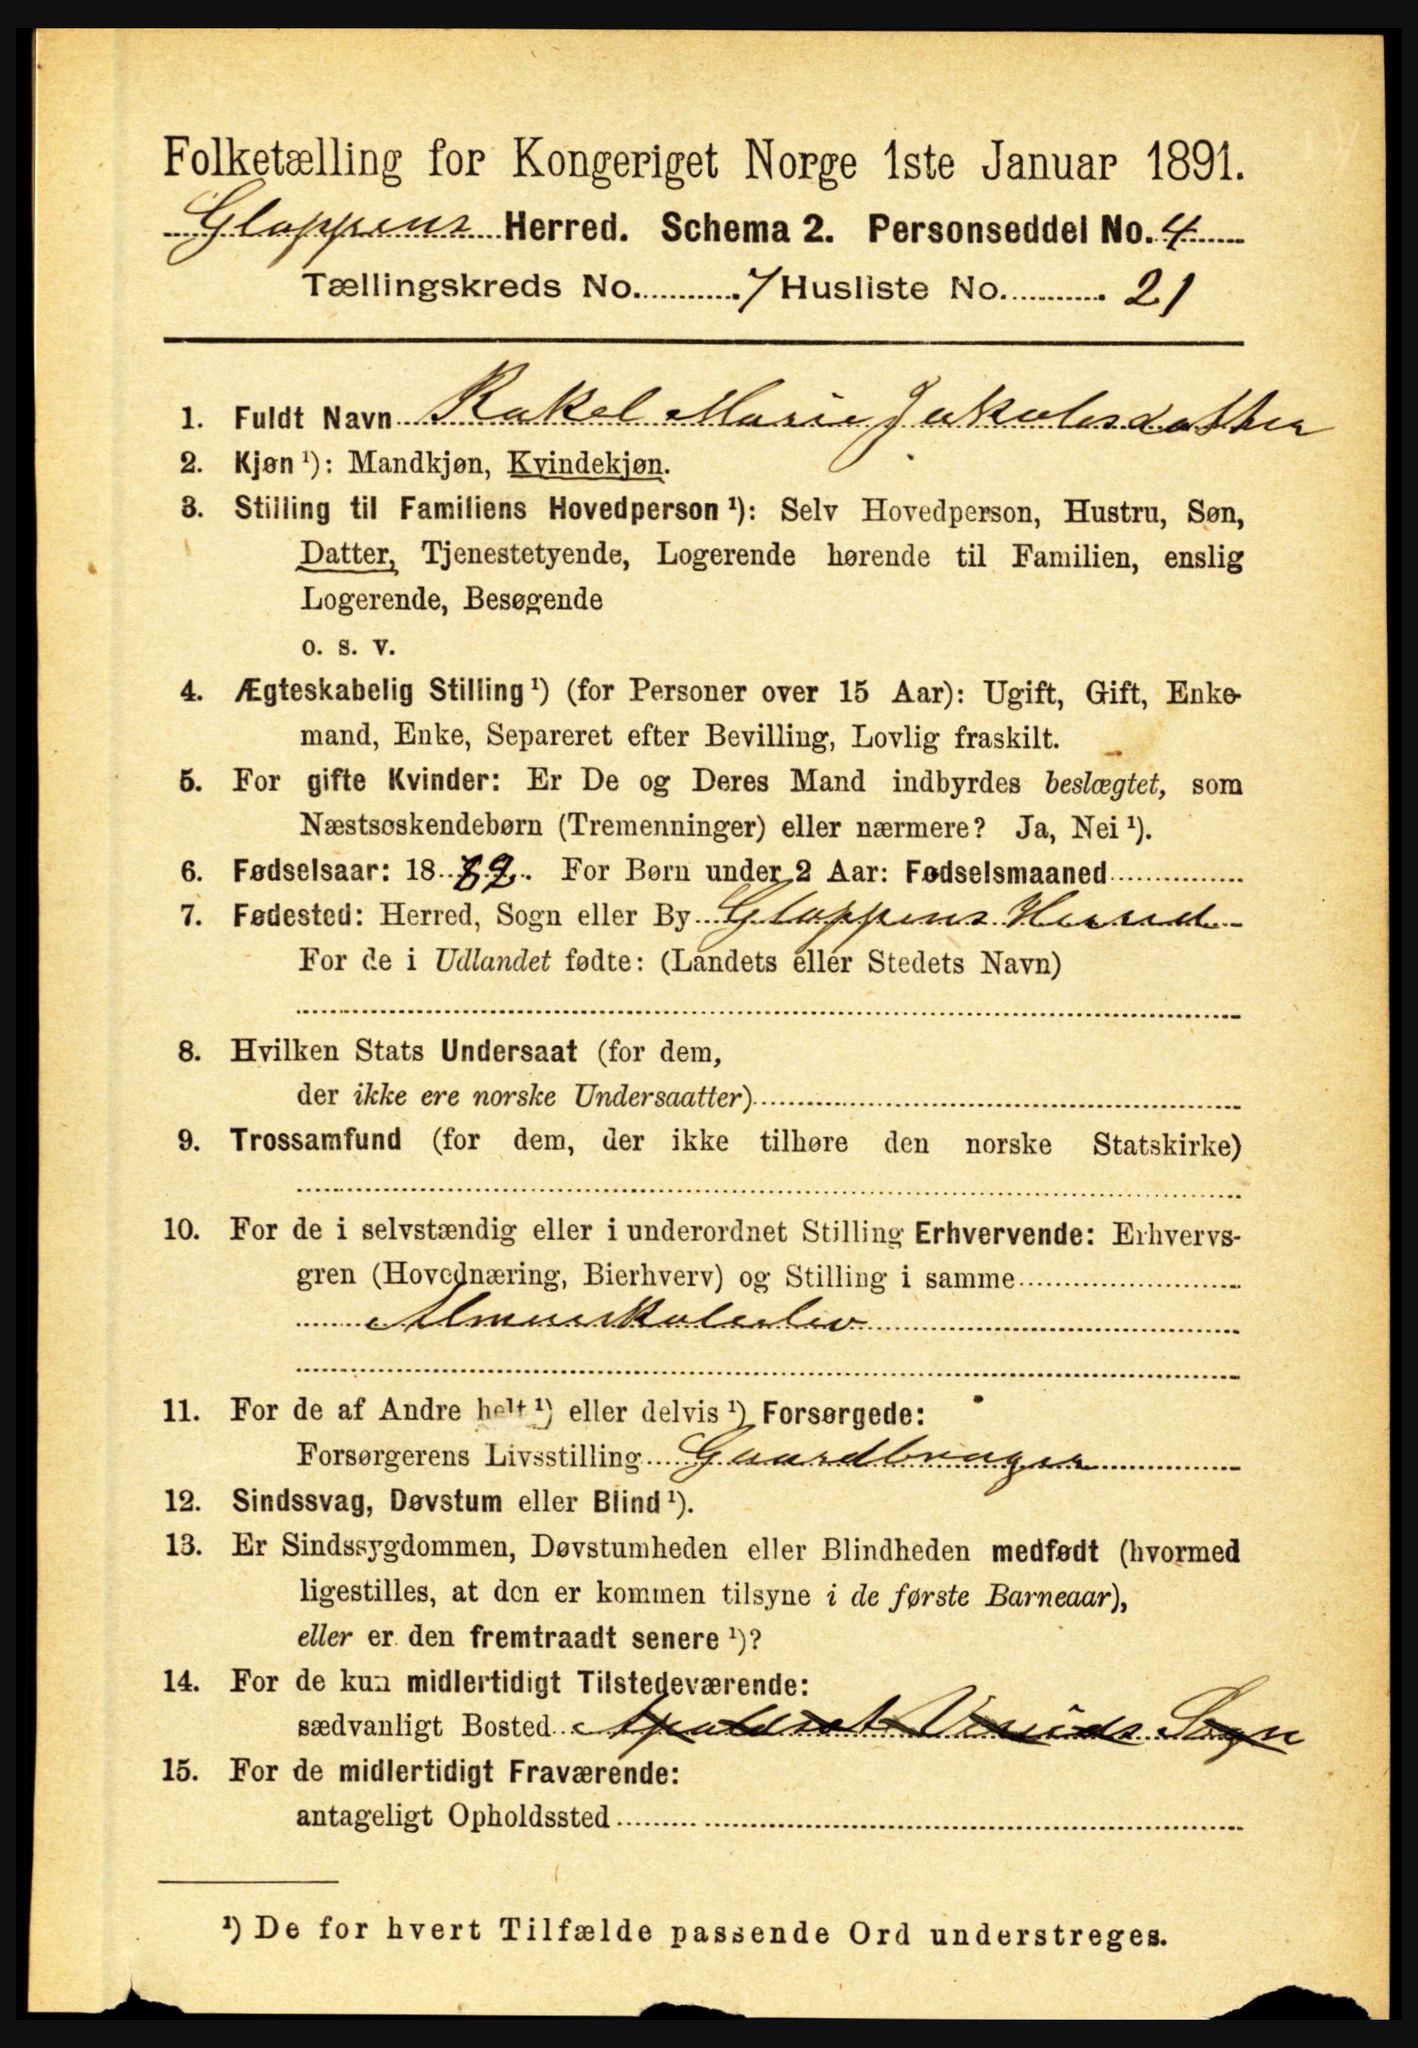 Folketælling for Kongeriget Norge 1ste Januar 1891.
Gloppens Herred. Schema 2. Personseddel No. 4
Tællingskreds No. 7 Husliste No. 21
1. Fuldt Navn Rakel Marie Jakobsdatter
2. Kjøn ¹): Mandkjøn, Kvindekjøn.
3. Stilling til Familiens Hovedperson ¹): Selv Hovedperson, Hustru, Søn,
Datter, Tjenestetyende, Logerende hørende til Familien, enslig
Logerende, Besøgende
o. s. v.
4. Ægteskabelig Stilling ¹) (for Personer over 15 Aar): Ugift, Gift, Enke-
mand, Enke, Separeret efter Bevilling, Lovlig fraskilt.
5. For gifte Kvinder: Er De og Deres Mand indbyrdes beslægtet, som
Næstsøskendebørn (Tremenninger) eller nærmere? Ja, Nei ¹).
6. Fødselsaar: 18 . For Børn under 2 Aar: Fødselsmaaned
7. Fødested: Herred, Sogn eller By Gloppens Herred
For de i Udlandet fødte: (Landets eller Stedets Navn)
8. Hvilken Stats Undersaat (for dem,
der ikke ere norske Undersaatter)
9. Trossamfund (for dem, der ikke tilhøre den norske Statskirke)
10. For de i selvstændig eller i underordnet Stilling Erhvervende: Erhvervs-
gren (Hovednæring, Bierhverv) og Stilling i samme
Almueskolelev
11. For de af Andre helt ¹) eller delvis ¹) Forsørgede:
Forsørgerens Livsstilling Gaardbruger
12. Sindssvag, Døvstum eller Blind ¹).
13. Er Sindssygdommen, Døvstumheden eller Blindheden medfødt (hvormed
ligestilles, at den er kommen tilsyne i de første Barneaar),
eller er den fremtraadt senere ¹)?
14. For de kun midlertidigt Tilstedeværende:
sædvanligt Bosted Sogn
15. For de midlertidigt Fraværende:
antageligt Opholdssted
¹) De for hvert Tilfælde passende Ord understreges.